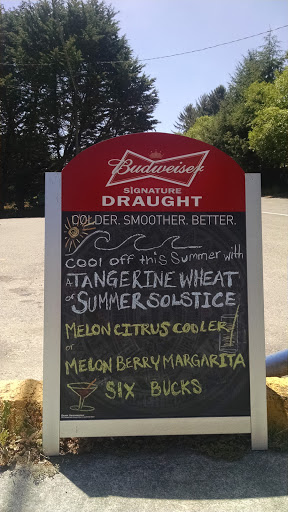 Budweiser
SIGNATURE
DRAUGHT
COLDER. SMOOTHER. BETTER.
Cool off this Summer with
a TANGERINE WHEAT
or SUMMER SOLSTICE
MELON CITRUS COOLER
or
MELON BERRY MARGARITA
SIX BUCKS